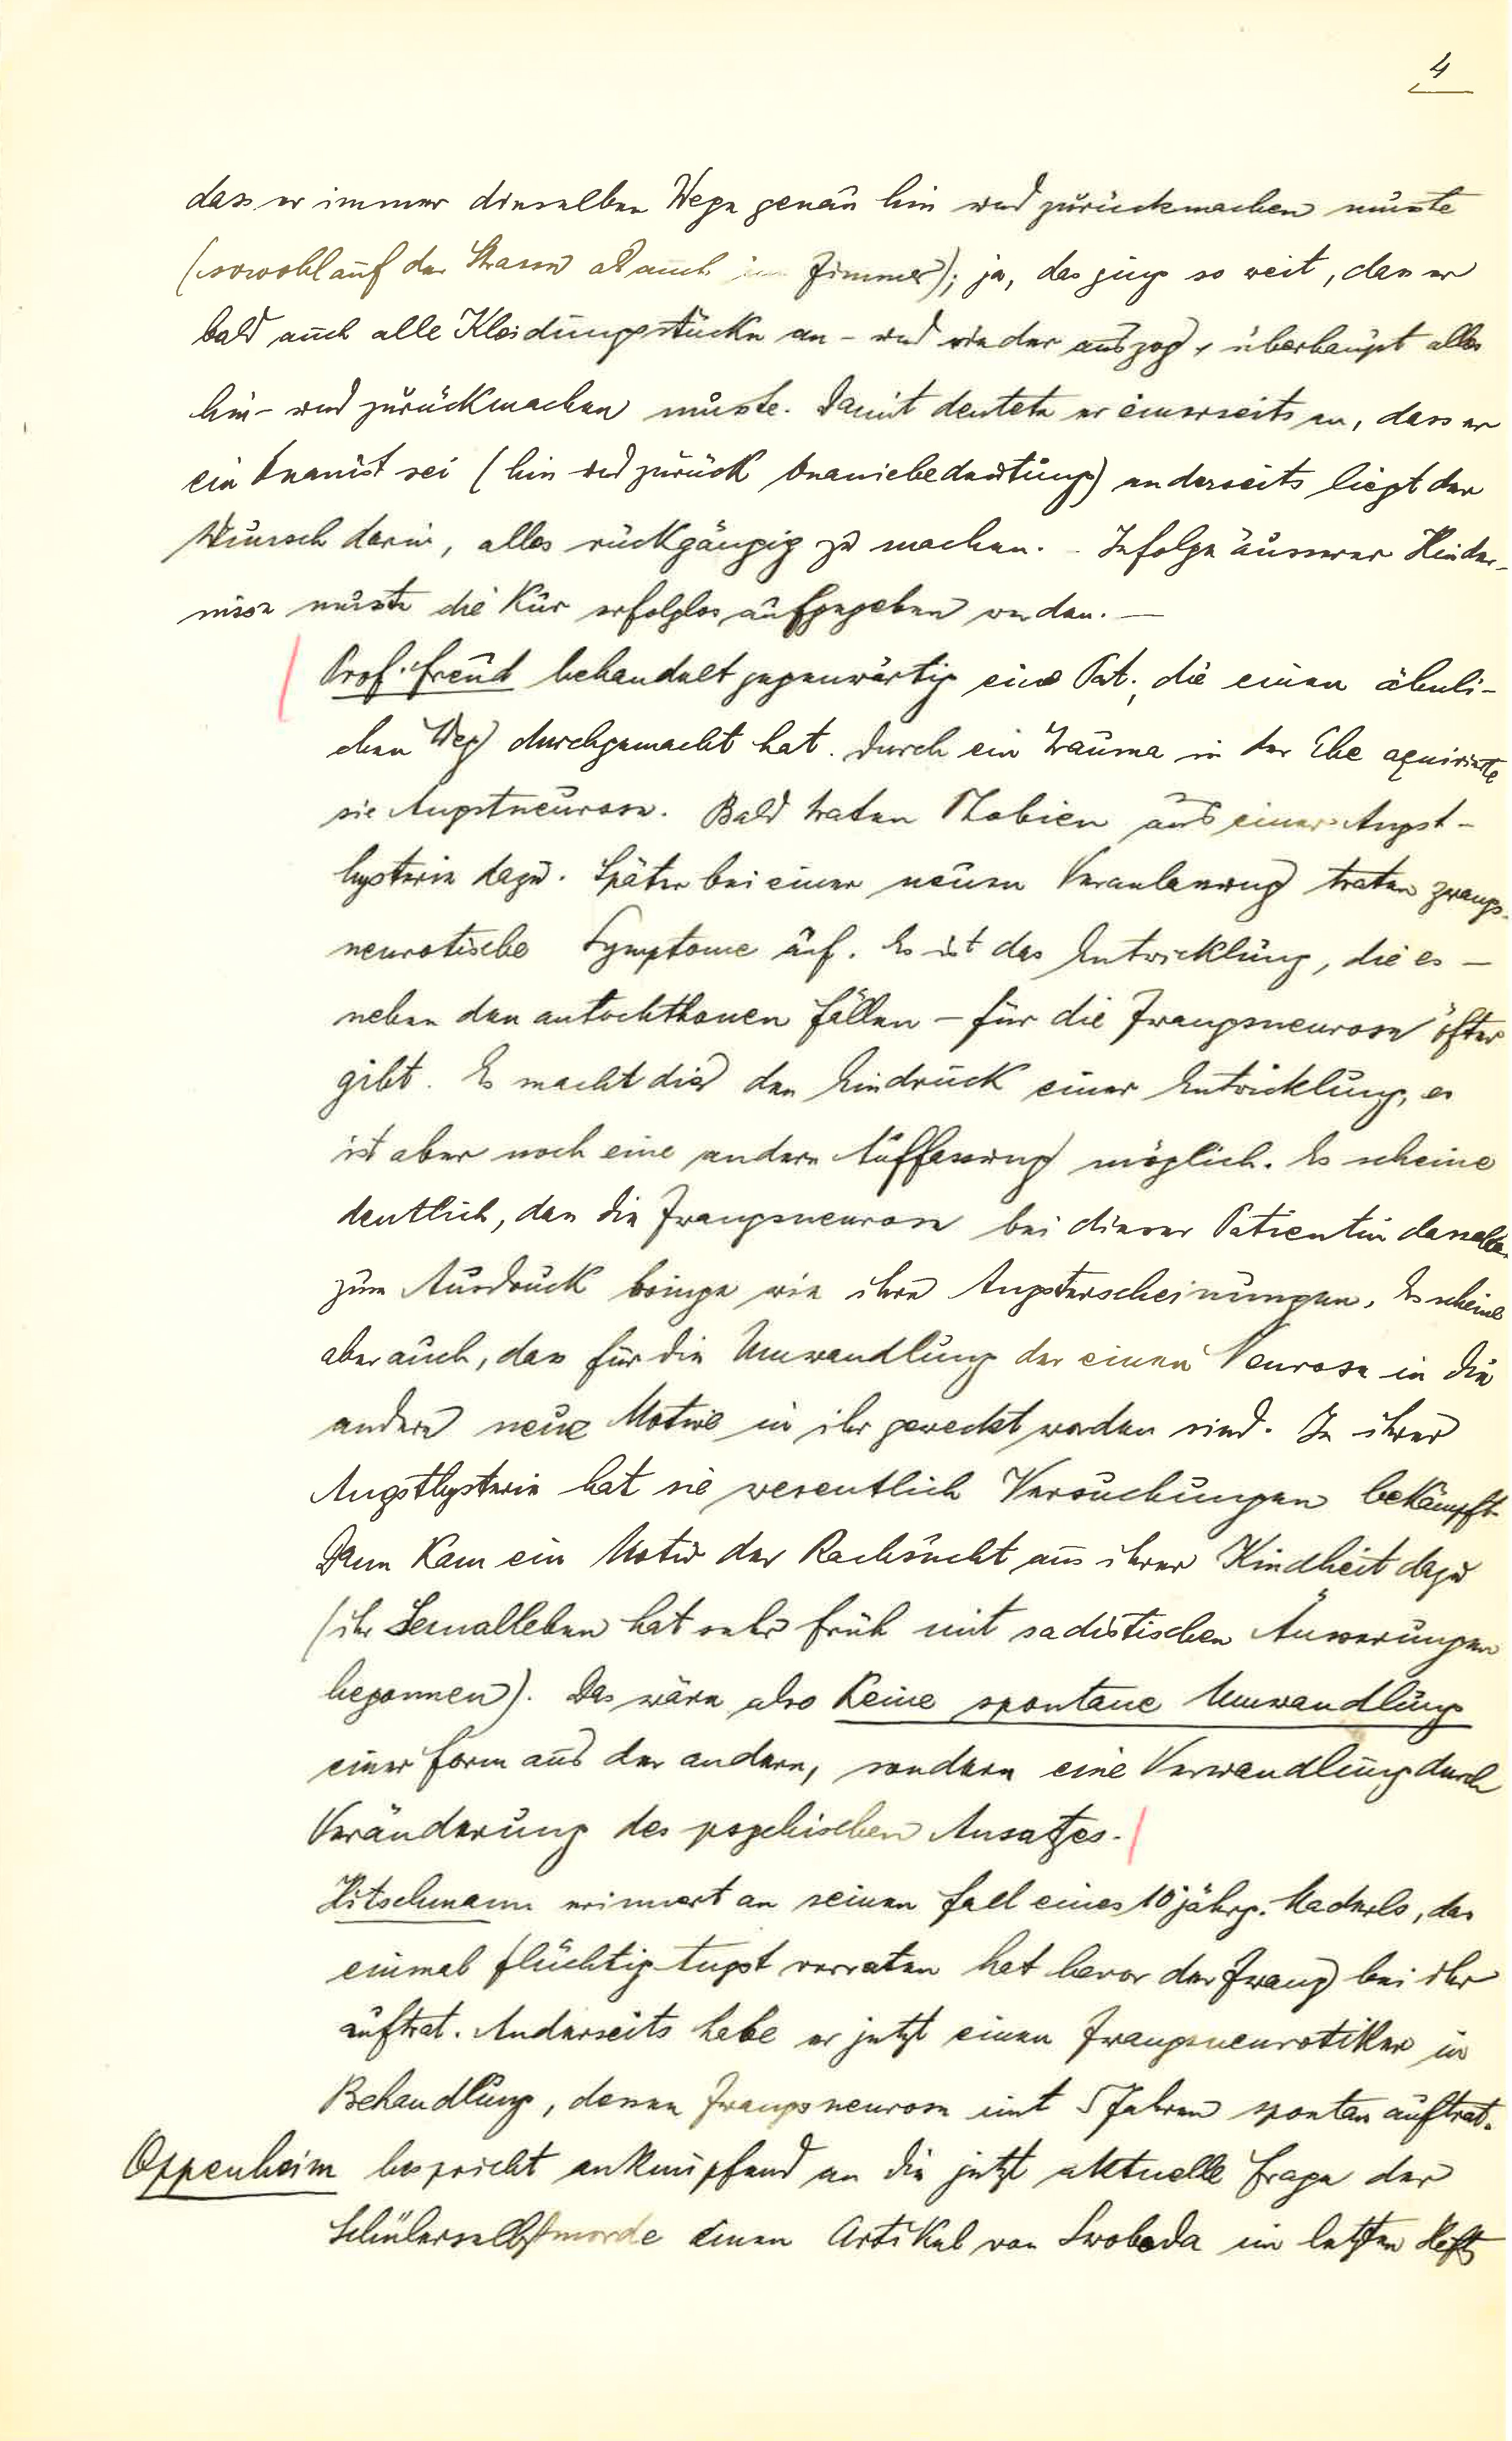 4
dass er immer dieselben Wege genau hin und zurückmachen musste
(sowohl auf der Strasse als auch im Zimmer); ja, das ging so weit, dass er
bald auch alle Kleidungsstücke an- und wieder auszog, überhaupt alles
hin- und zurückmachen musste. Damit deutete er einerseits an, dass er
ein Onanist sei (hin und zurück Onaniebedeutung) anderseits liegt der
Wunsch darin, alles rückgängig zu machen. - Infolge äusserer Hinder-
nisse musste die Kur erfolglos aufgegeben werden. —
Prof. Freud behandelt gegenwärtig eine Pat., die einen ähnli-
chen Weg durchgemacht hat. Durch ein Trauma in der Ehe aquirierte
sie Angstneurose. Bald traten Phobien aus einer Angst-
hysterie dazu. Später bei einer neuen Veranlassung traten zwangs-
neurotische Symptome auf. Es ist das Entwicklung, die es —
neben den autochthonen Fällen — für die Zwangsneurose öfter
gibt. Es macht dies den Eindruck einer Entwicklung, es
ist aber noch eine andere Auffassung möglich. Es scheine
deutlich, dass die Zwangsneurose bei dieser Patientin dasselbe
zum Ausdruck bringe wie ihre Angsterscheinungen. Es scheine
aber auch, dass für die Umwandlung der einen Neurose in die
andere neue Motive in ihr geweckt worden sind. In ihrer
Angsthysterie hat sie wesentlich Versuchungen bekämpft.
Dann kam ein Motiv der Rachsucht aus ihrer Kindheit dazu
(ihr Sexualleben hat sehr früh mit sadistischen Äusserungen
begonnen). Das wäre also keine spontane Umwandlung
einer Form aus der andern, sondern eine Verwandlung durch
Veränderung des psychischen Ansatzes.
Hitschmann erinnert an seinen Fall eines 10 jährg. Maderls, das
einmal flüchtig Angst verraten hat bevor der Zwang bei ihr
auftrat. Anderseits habe er jetzt einen Zwangsneurotiker in
Behandlung, dessen Zwangsneurose mit 5 Jahren spontan auftrat.
Oppenheim bespricht anknüpfend an die jetzt aktuelle Frage der
Schülerselbstmorde einen Artikel von Swoboda im letzten Heft